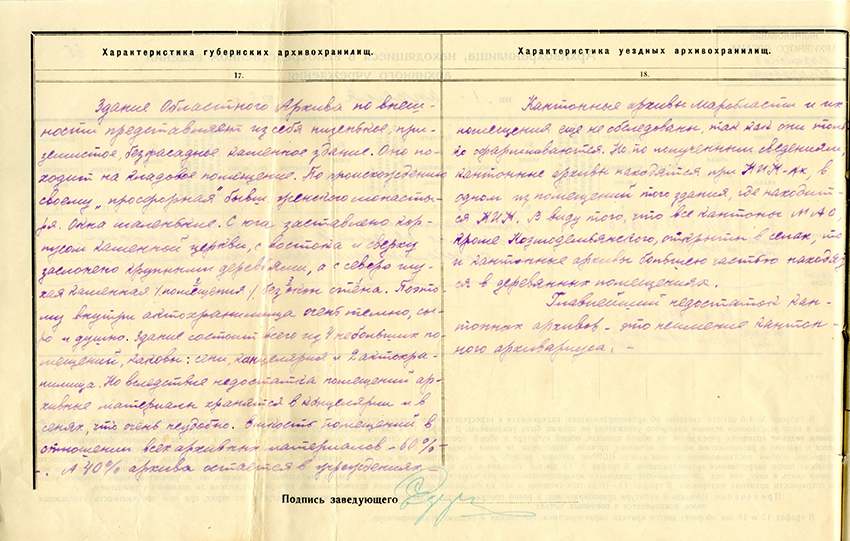 Характеристика губернских архивохранилищ.
17.
Здание Областного Архива по внеш-
ности представляет из себя низенькое, при-
земистое, безфасадное каменное здание. Оно по-
ходит на кладовое помещение. По происхождению
своему „просфорная" бывш. женского монасты-
ря. Окна маленькие. С юга заставлено кор-
пусом каменной церкви, с востока и сверху
заслонено крупными деревьями, а с севера глу-
хая каменная /помещения/ без окон стена. Поэто-
му внутри актохранилища очень темно, сы-
ро и душно. Здание состоит всего из 4 небольших по-
мещений, каковы: сени, канцелярия и 2 актохра-
нилища. Но вследствие недостатка помещений ар-
хивные материалы хранятся в канцелярии и в
сенях, что очень неудобно. Емкость помещений в
отношении всех архивных материалов – 60%–
–. А 40% архива остается в учреждениях.–
Характеристика уездных архивохранилищ.
18.
Кантонные архивы Маробласти и их
помещения еще не обследованы, так как они толь-
ко сформливаются. Но по полученным сведениям,
кантонные архивы находятся при КИК-ах, в
одном из помещений того здания, где находит-
ся КИК. В виду того, что все кантоны МАО
кроме Козмодемьянского, открыты в селах, то
и кантонные архивы большею частью находят-
ся в деревянных помещениях.
Главнейший недостаток кан-
тонных архивов – это неимение кантон-
ного архивариуса. –
Подпись заведующего